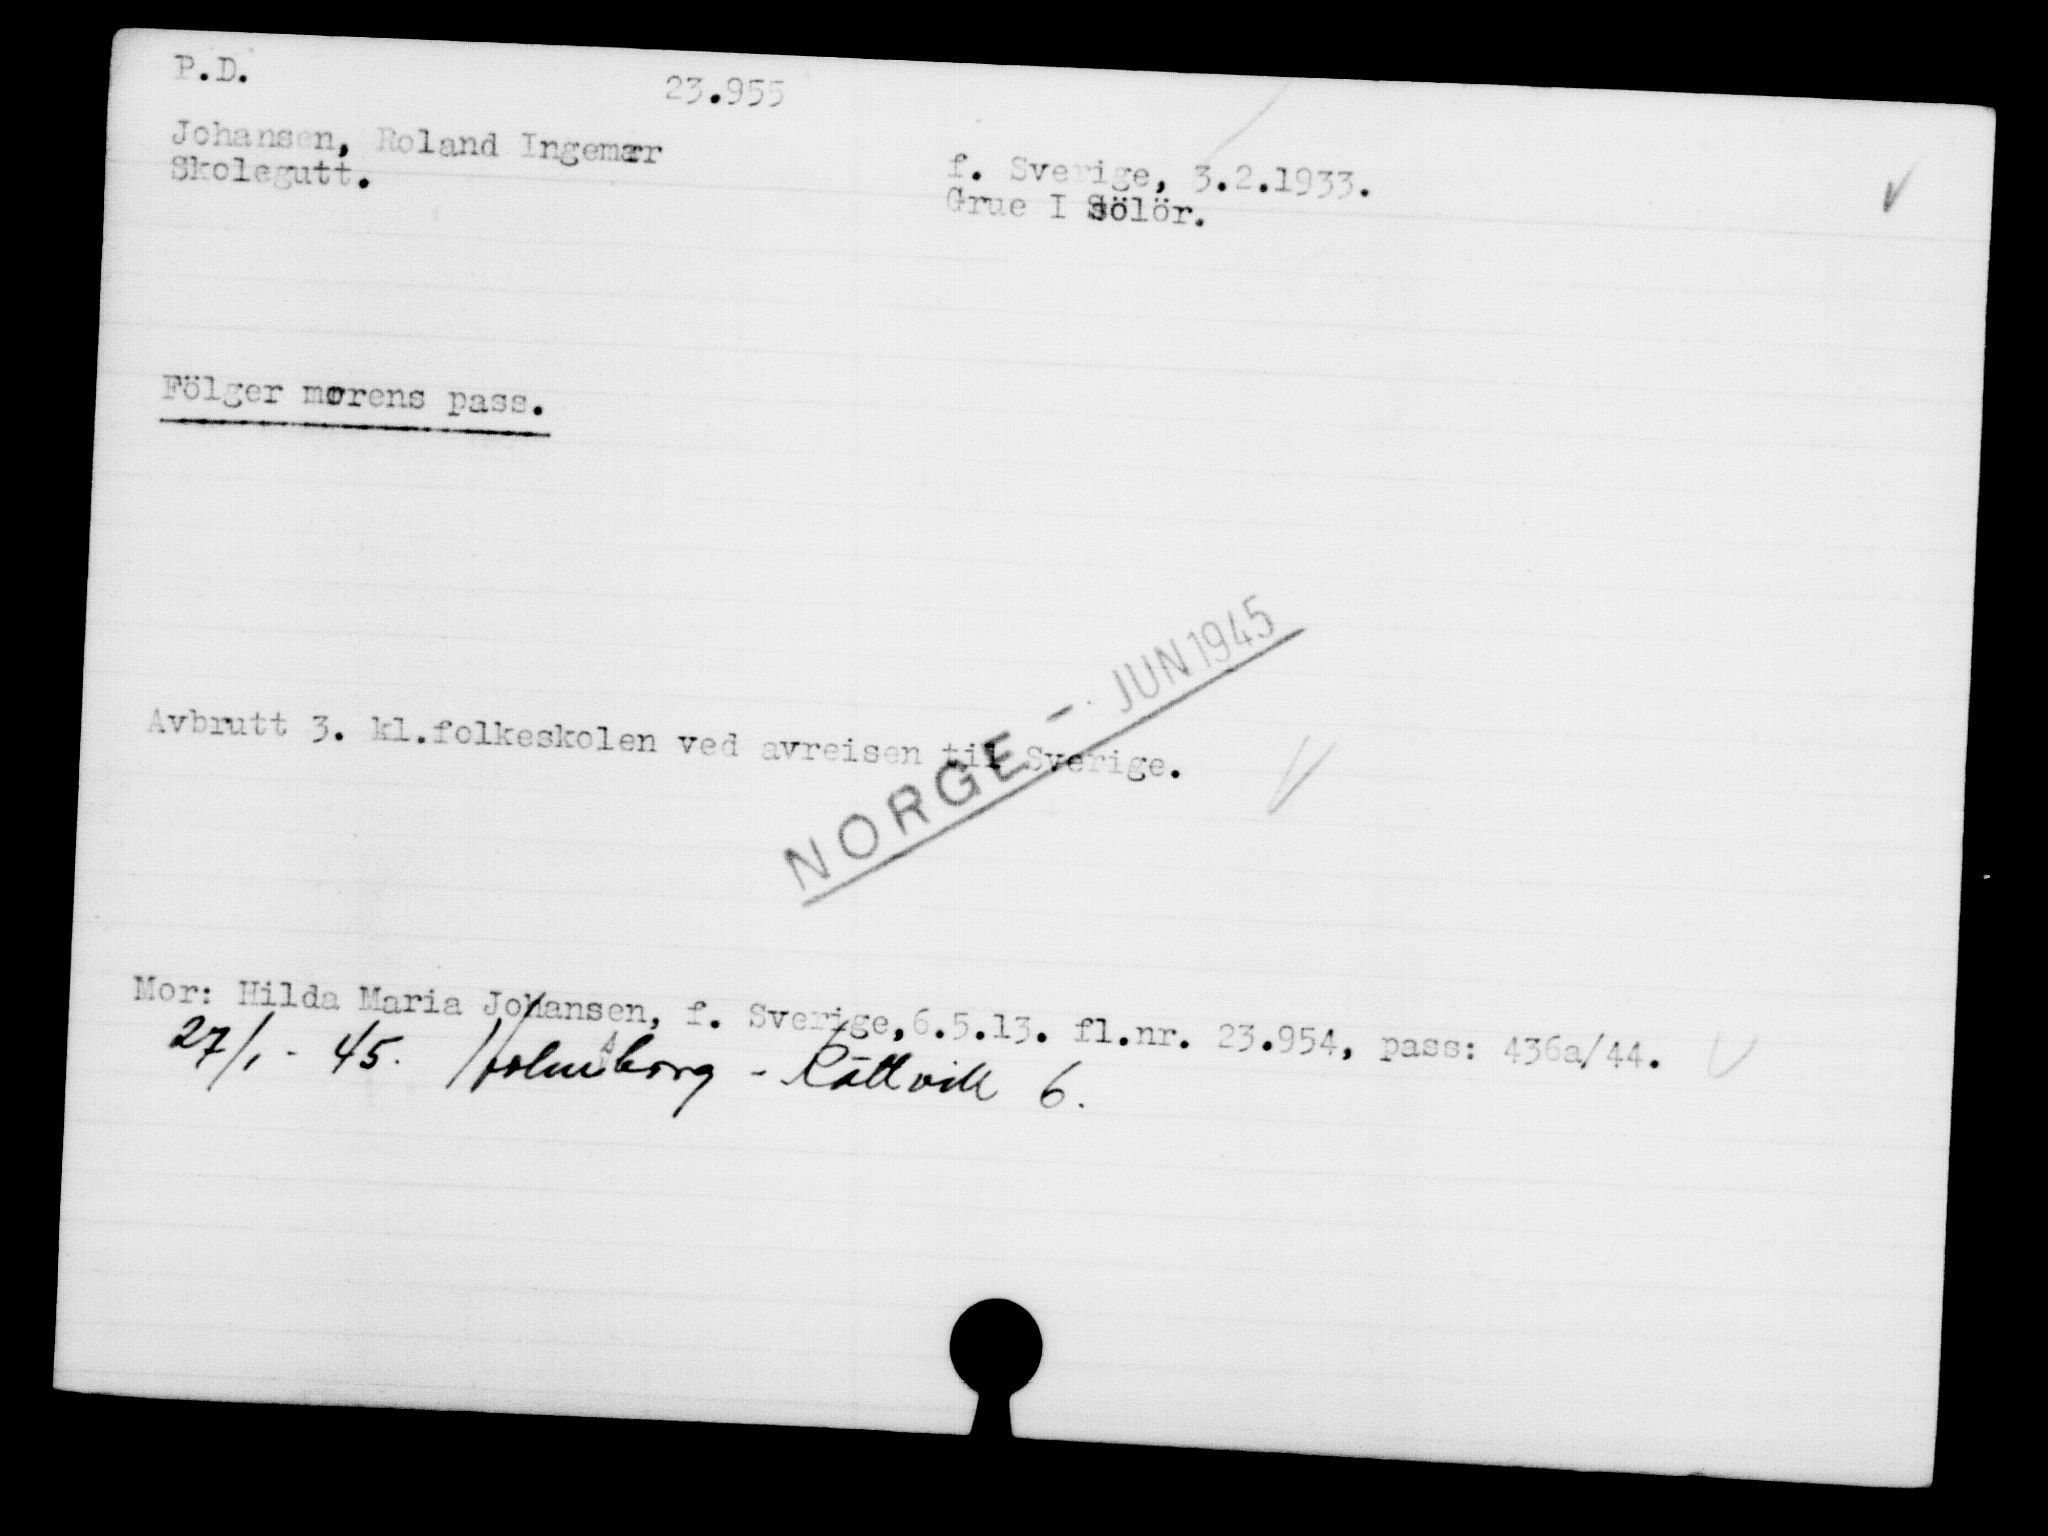 P.D.
23.955
Johansen, Roland Ingemar
Skolegutt.
f. Sverige, 3.2.1933.
Grue I Sölör.
Fölger morens pass.
NORGE - JUN 1945
Avbrutt 3. kl.folkeskolen ved avreisen til Sverige.
Mor: Hilda Maria Johansen, f. Sverige,6.5.13. fl.nr. 23.954, pass: 436a/44.
27/1 - 45. Holmsborg - Rättvik 6.